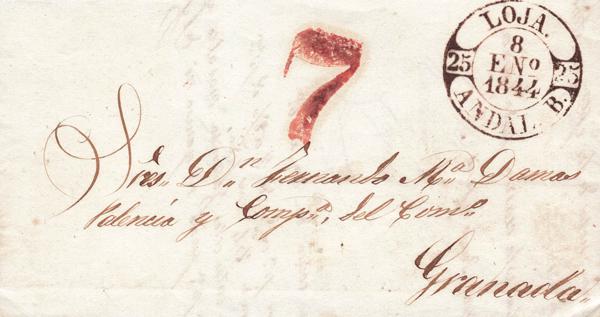 LOJA.
8
ENº
1844
25 25
ANDAL. B.
7
Sres. Dn. Fernando Mª. Damas
Valencia y Compª. del Comº.
Granada.